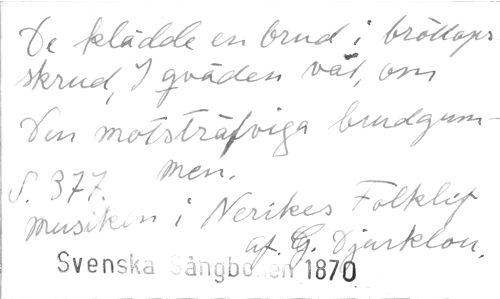 De klädde en brud i bröllops
skrud, I qväden väl, om
Den motsträfviga brudgum-
men.
S. 377.
musiken i Nerikes Folklif
af. G. Djurklou.
Svenska Sångboken 1870